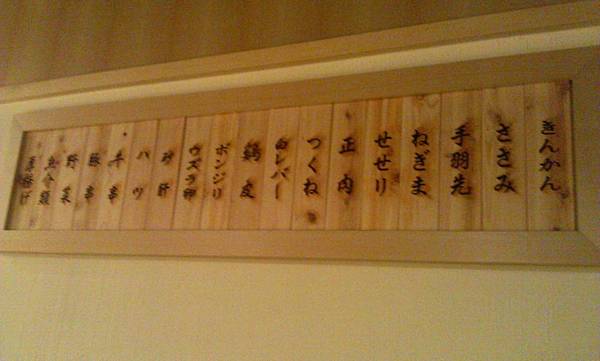 きんかん
ささみ
手羽先
ねぎま
せせり
正肉
つくね
白レバー
鶏皮
ボンジリ
ウズラ卵
砂肝
ハツ
牛串
豚串
野菜